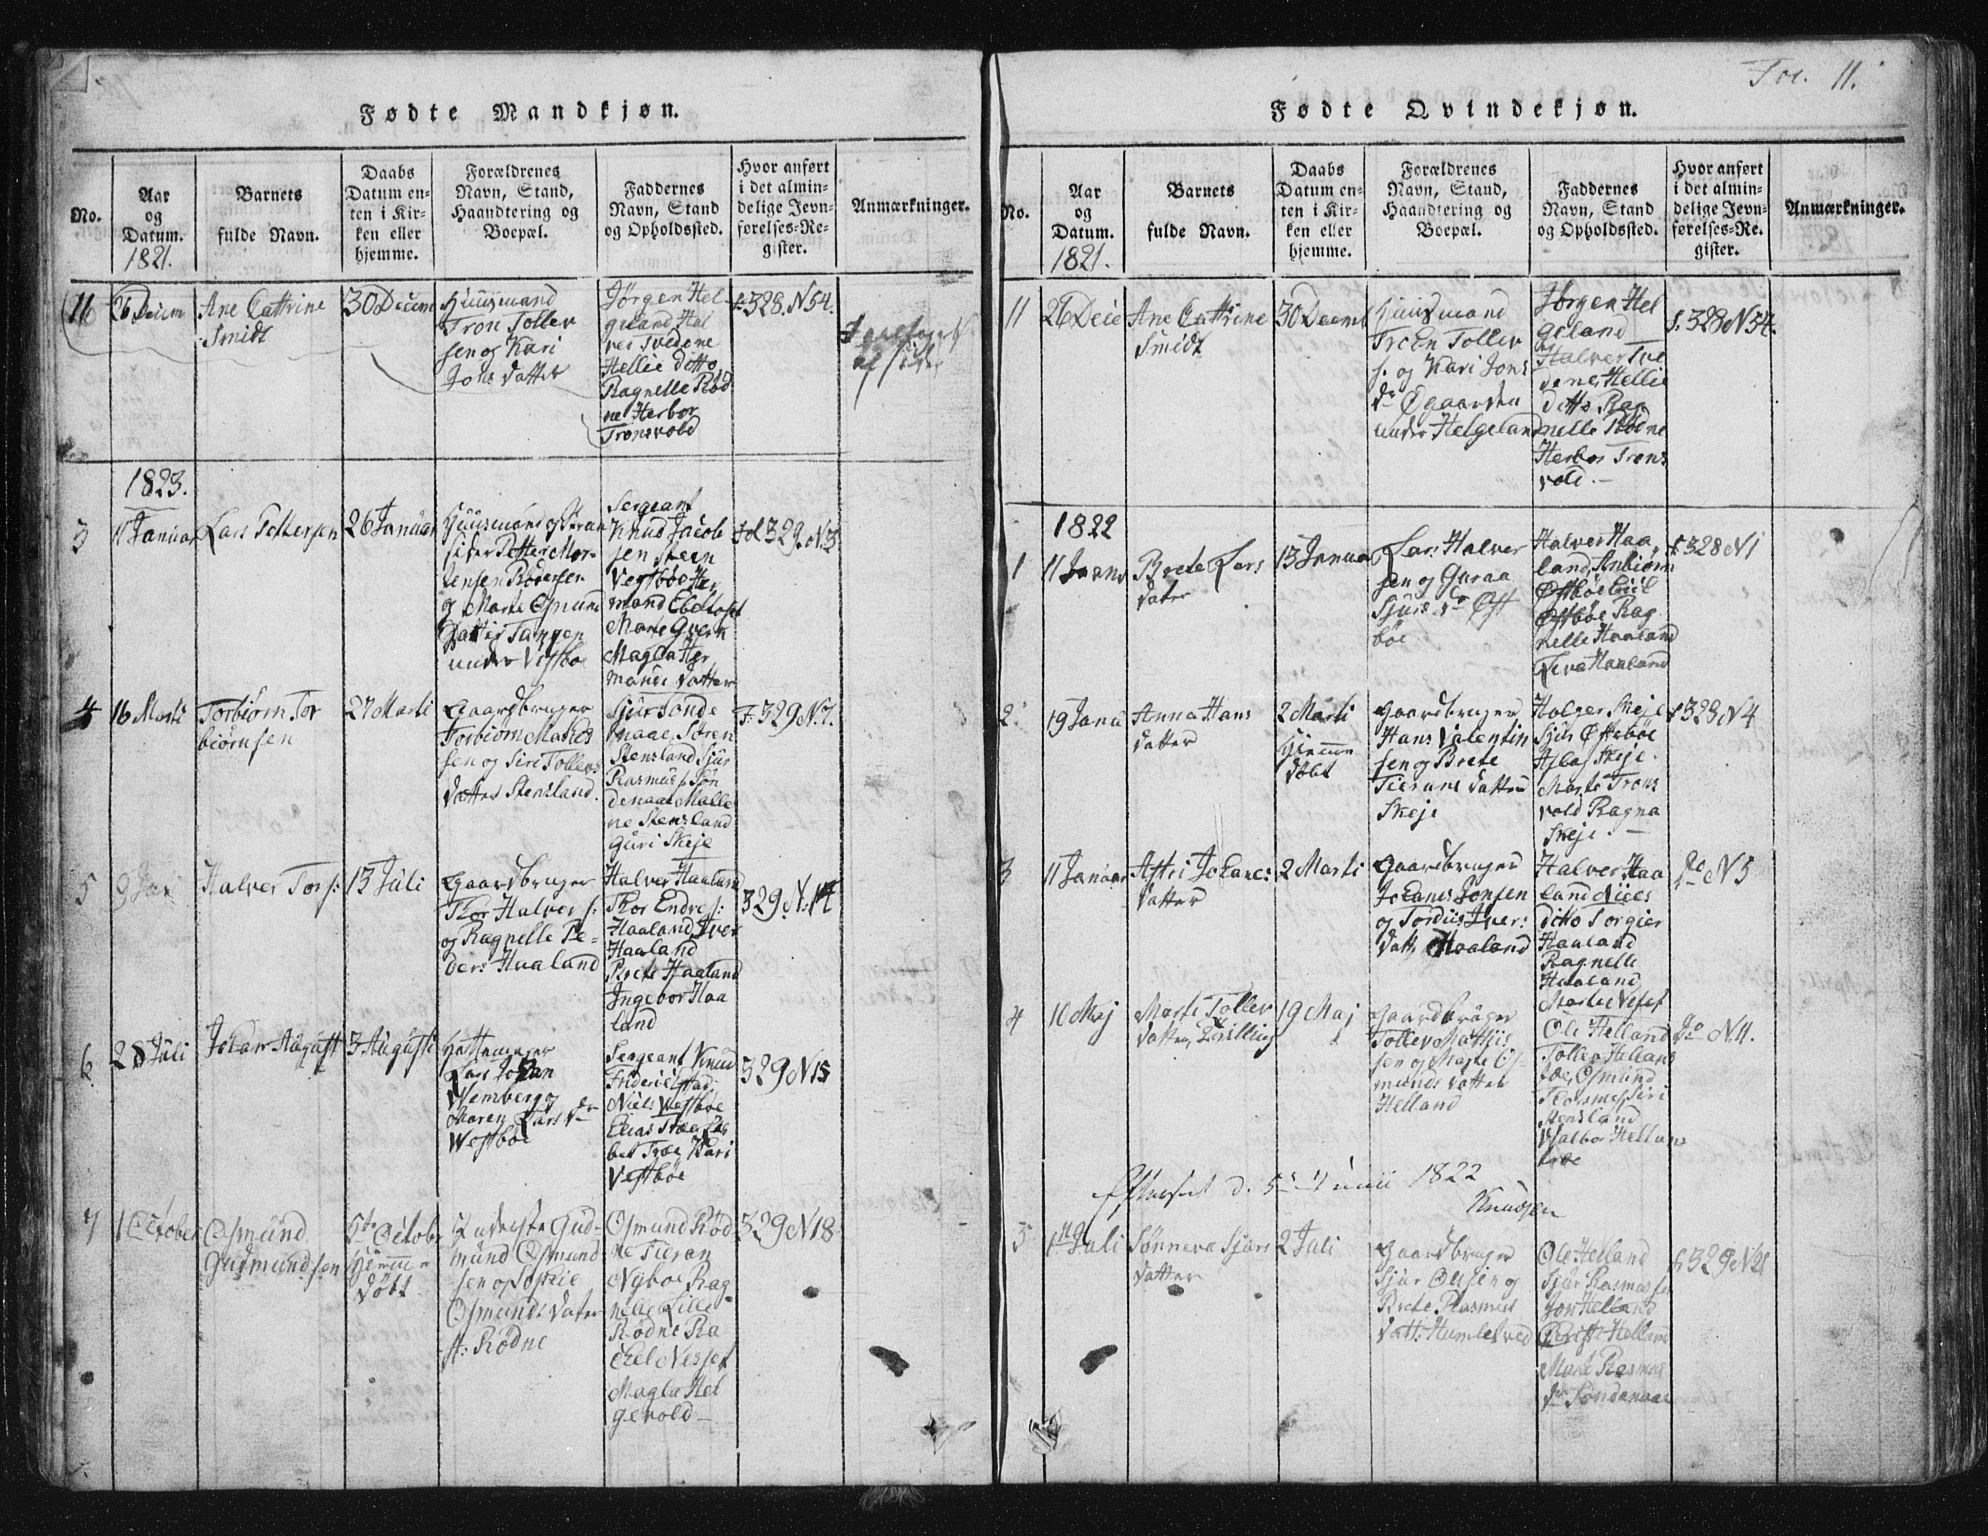 Fødte Mandkjøn.
No.
Aar
og
Datum.
1821.
Barnets
fulde Navn.
Daabs
Datum en-
ten i Kir-
ken eller
hjemme.
Forældrenes
Navn, Stand,
Haandtering og
Boepæl.
Faddernes
Navn, Stand
og Opholdssted.
Hvor anført
i det almin-
delige Jevn-
førelses-Re-
gister.
Anmærkninger.
11
26 Decem
Ane Cattrine
Smidt
30 Decem
Huusmand
Tron Toller
sen og Kari
Jons datter
Jørgen Hel
geland Hal
ver Tvedene
Hellie ditto
Ragnelle Rød
ne Herbor
Tronsvold
f 328 N 54.
1823.
3
11 Januar
Lars Pettersen
26 Januar
Huusmand og
Petter Mor-
tensen
og Marte Osmund
Datter Tangen
under Vestbøe
Sergeant
Knud Jacob
sen Steen
Vestbøe Her
mand
Marte
Magla Her
mands datter
fol 329 N 3
4
16 Marti
Torbiørn Tor
biørnsen
27 Marti
Gaardbruger
Torbiørn
sen og Siri Tollevs
datter Stensland.
Sjur Sonde
naae, Søren
Stensland Sjur
Rasmus s Søn
denaae Malle
ne Stensland
Guri Skeje
F. 329 N 7.
5
9 Jun
Halver Tor s:
13 Juli
Gaardbruger
Thor Halver s:
og Ragnelle Pe-
ders Haaland
Halver Haaland
Thor Endre s:
Haaland Iver
Haaland
Brete Haaland
Ingebor Haa
land
329 N. 14
6
28 Juli
Johan August
3 Augusti
Hattemager
Lars Johan
Wemberg og
Maren Lars dr
Westbøe
Sergeant Knud
Friderichstad
Niels Westbøe
Elias Træe
bet Træe Kari
Vestbøe
329 N 15
7
1 October
Osmund
Gudmundsen
5te Octobr
Hiemme
døbt
Gud-
mund Osmund
sen og
Osmunds datter
Rødne
Osmund Rød
ne
Nyboe Rag
nelle Lille
Rødne Ra
chel Nesset
Magla Hel
gevold
329 N 18
Fol. 11.
Fødte Qvindekjøn.
No.
Aar
og
Datum.
1821.
Barnets
fulde Navn.
Daabs
Datum en-
ten i Kir-
ken eller
hjemme.
Forældrenes
Navn, Stand,
Haandtering og
Boepæl.
Faddernes
Navn, Stand
og Opholdssted.
Hvor anført
i det almin-
delige Jevn-
førelses-Re-
gister.
Anmærkninger.
11
26 Dece
Ane Cattrine
Smidt
30 Decemb
Huusmand
Tron Toller
s. og Kari Jons
dr Øgaarden
under Helgeland
Jørgen Hel
geland
Halver Tve
dene, Hellie
ditto Rag
nelle Rødne
Herbor Trons
vold.
f. 328 N 54.
1822
1
11 Janu
Brete Lars
dater
13 Januar
Lars Halver
sen og Guraa
Sjurs dr Øst
bøe
Halver Haa
land, Anbiørn
Østbøe
Østbøe Rag
nelle Haaland
Haaland
f 328 N 1
2
19 Janu
Anna Hans
datter
2 Marti
Hiemme
døbt
Gaardbruger
Hans Valentin
sen og Brete
datter
Skeje
Holger Skeje
Sjur Østebøe
Skeje.
Marte Trons
vold Ragna
Skeje.
f 328 N 4
3
11 Januar
Astri Johanes
datter
2 Marti
Gaardbruger
Johanes Jonsen
og Tordiis Ivers
datt. Haaland
Halver Haa
land Niels
ditto Torgier
Haaland
Ragnelle
Haaland
Marte
do N 5
4
10 Maj
Marte Tollev
datter, Tvilling
19 Maj
Gaardbruger
Tollev Mathis
sen og Marte Os
munds datter
Helland
Ole Helland
Tollev Hellans
Osmund
Siri
Stensland
Valbor Hellans
do N. 11.
Efterseet d. 5te Junii 1822
Knudsen
5
1te Juli
Sønneva Sjurs
datter
2 Juli
Gaardbruger
Sjur Olesen og
Brete Rasmus
datt. Humlesved
Ole Helland
Sjur Rasmus sen
Jon Helland
Helland
Marte Rasmus
dr Søndenaae
f 329 N 21